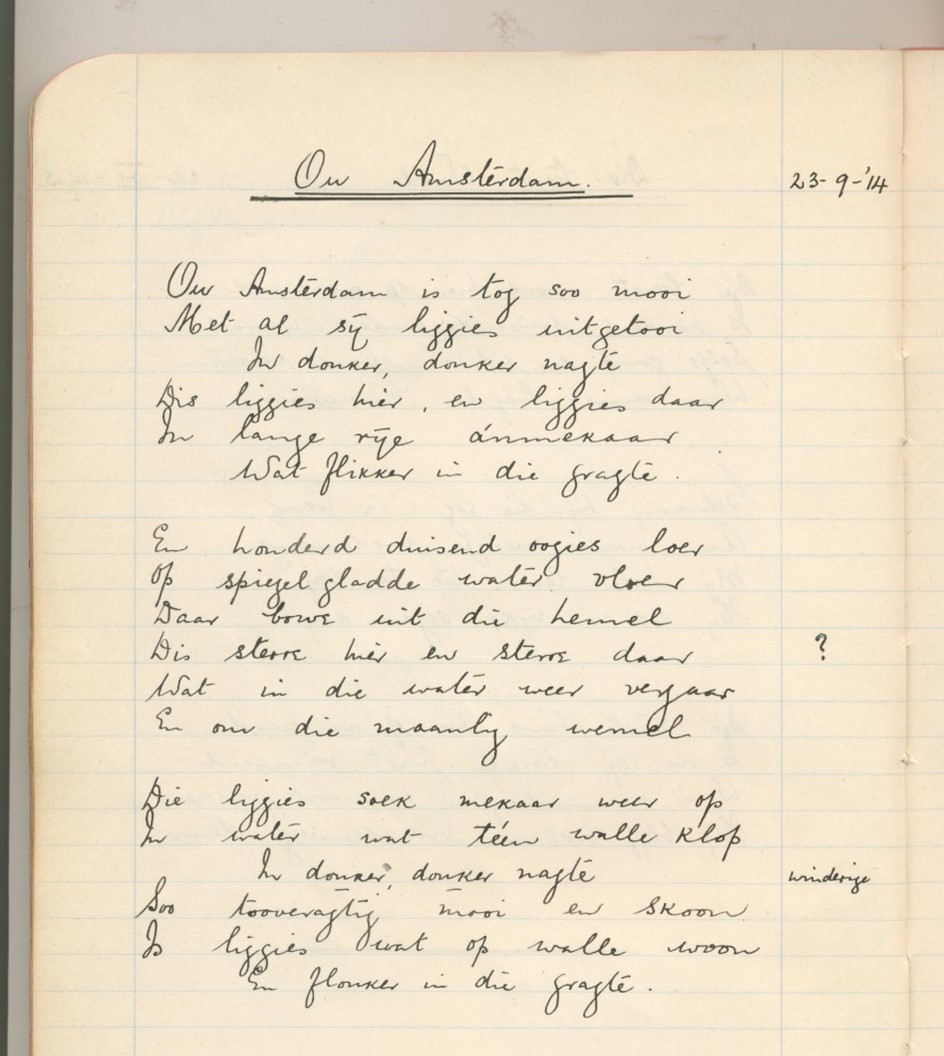 Ou Amsterdam. 23-9-'14
Ou Amsterdam is tog soo mooi
Met al sÿ liggies uitgetooi
In donker, donker nagte
Dis liggies hier, en liggies daar
In lange rÿe ánmekaar
Wat flikker in die gragte.
En honderd duisend oogies loer
Op spiegel gladde water vloer
Daar bowe uit die hemel
Dis sterre hier en sterre daar ?
Wat in die water weer vergaar
En om die maanlig wemel
Die liggies soek mekaar weer op
In water wat téen walle klop
In donker, donker nagte winderige
Soo tooveragtig mooi en skoon
Is liggies wat op walle woon
En flonker in die gragte.